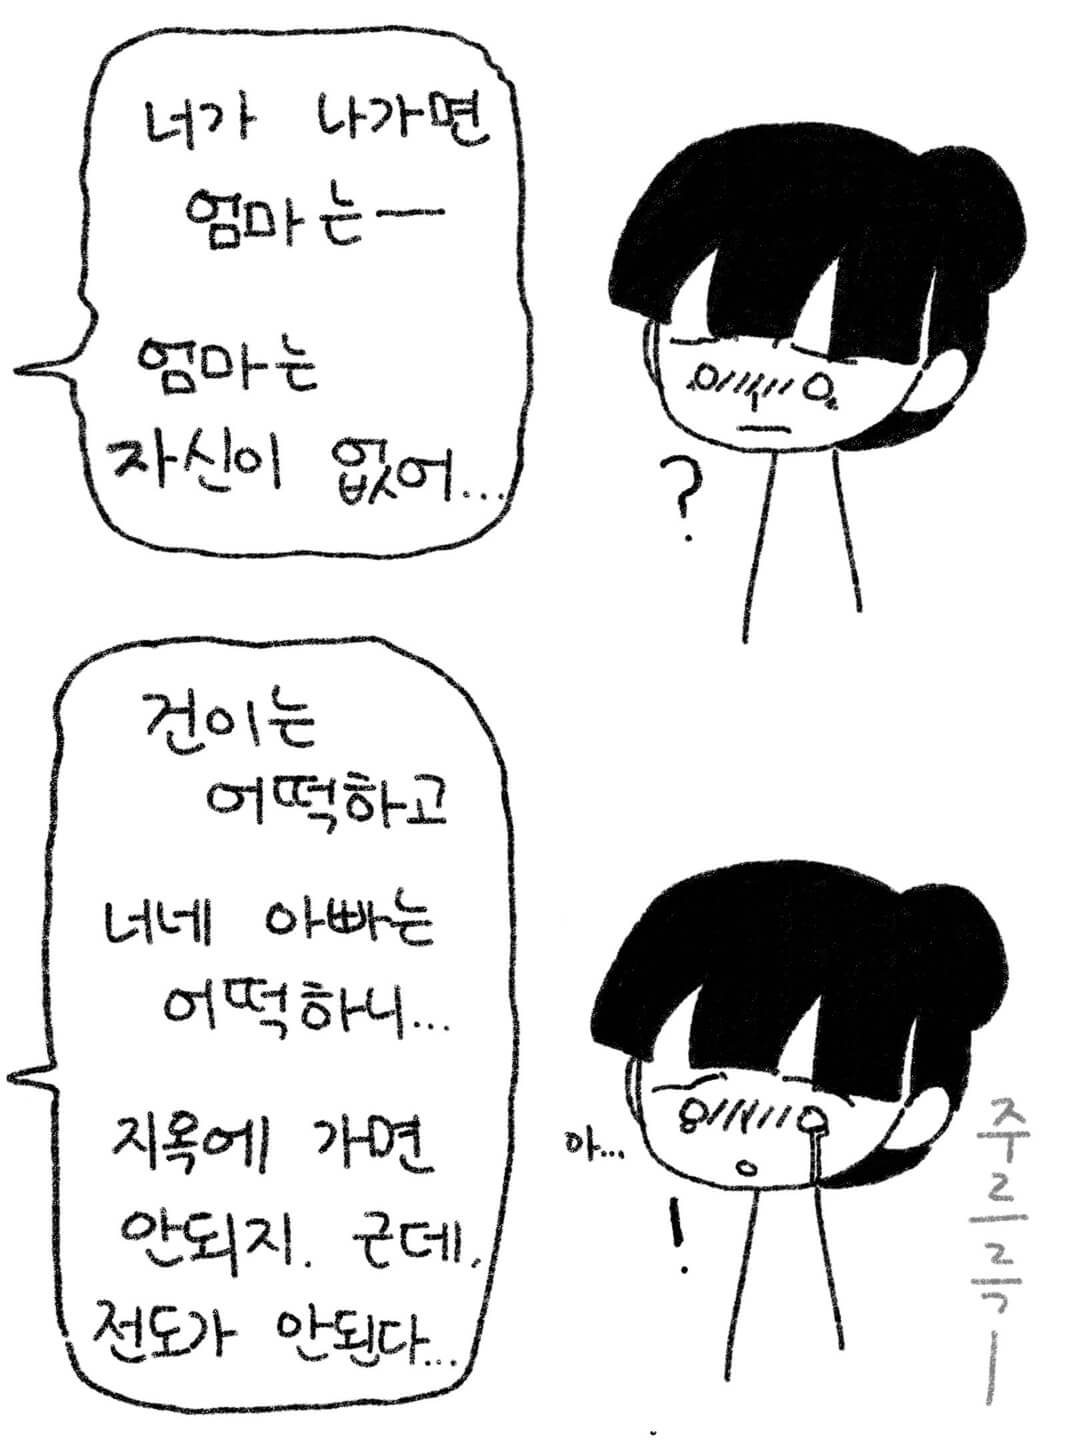 너가 나가면
엄마는ㅡ
엄마는
자신이 없어...
?
건이는
어떡하고
너네 아빠는
어떡하니...
지옥에 가면
안되지. 근데,
전도가 안된다...
아...
!
주르륵ㅡ